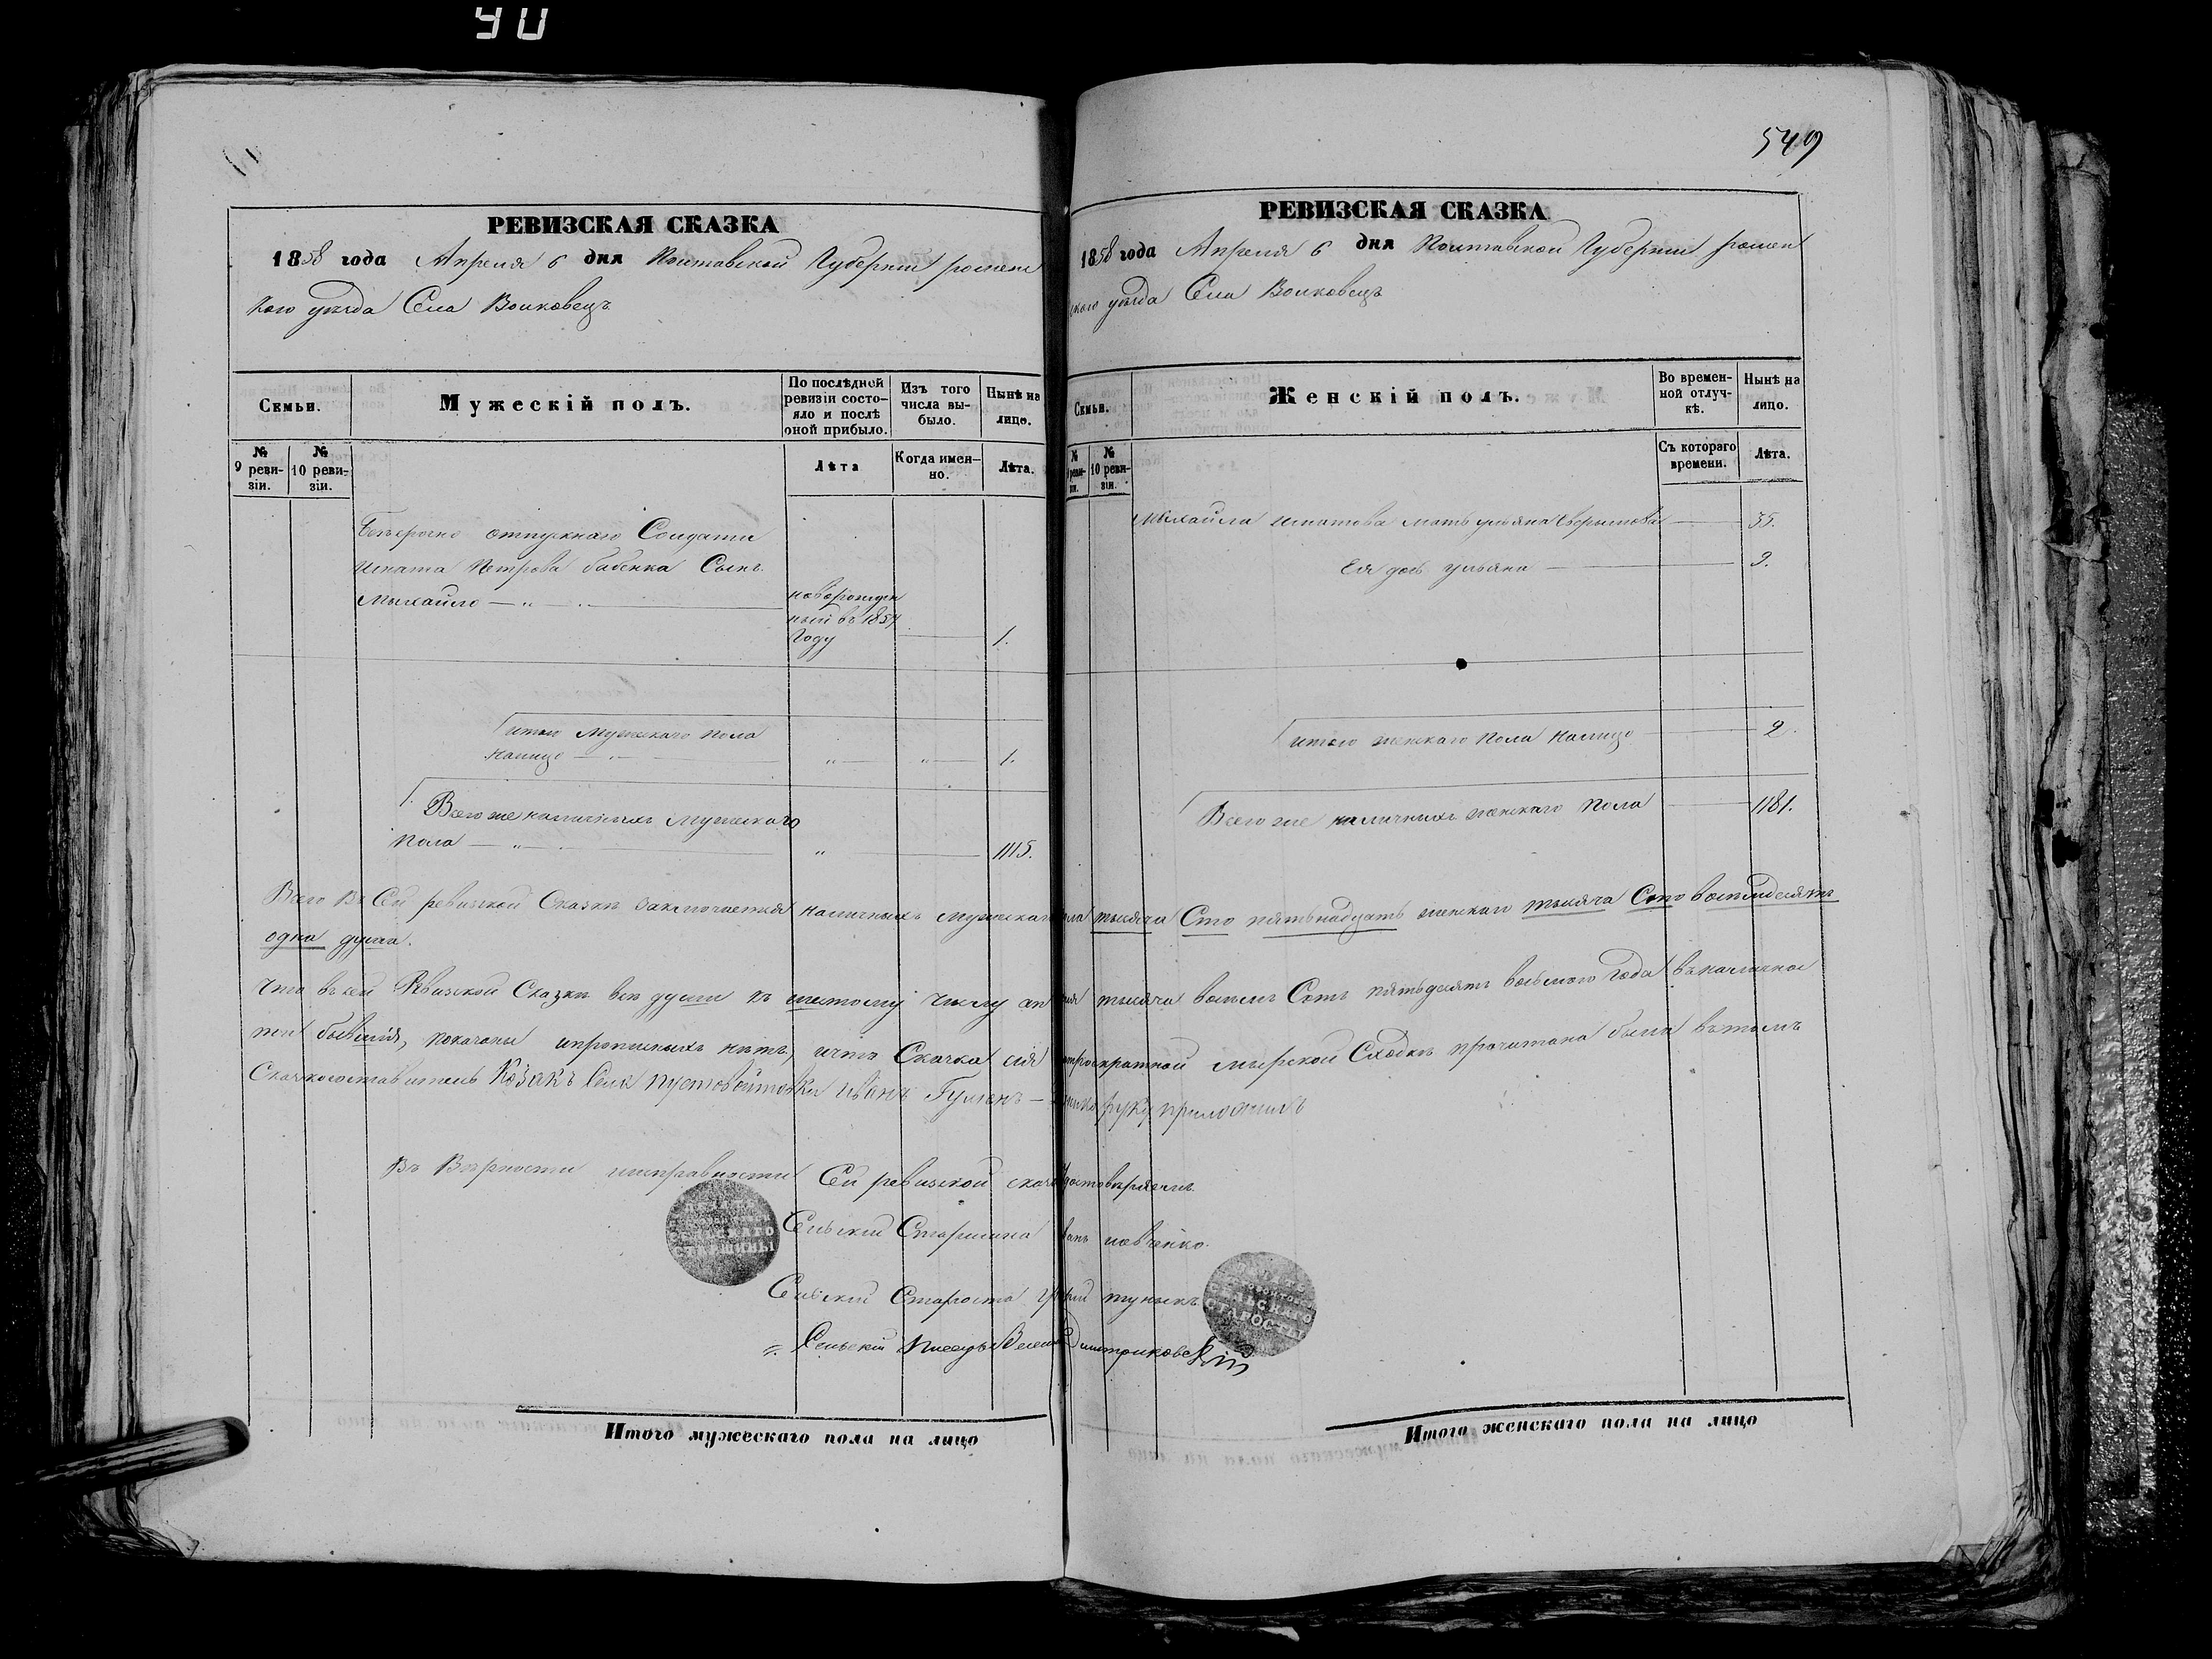 90
549
РЕВИЗСКАЯ СКАЗКА
1858 года Апреля 6 дня Полтавской Губернии ромен
кого уѣзда Села Волковецъ
Семьи.
Мужескій полъ.
По послѣдней ревизіи состояло и послѣ оной прибыло.
Изъ того числа выбыло.
Нынѣ на лицо.
№ 9 ревизіи.
№ 10 ревизіи.
Лѣта
Когда именно.
Лѣта.
Безсрочно отпускнаго Солдата
Игната Петрова бабенка Сынъ
Михайло
новорожден
ный въ 1857
Году 1.
итого Мужескаго пола
налицо 1.
Всего же наличныхъ Мужескаго
пола 1115.
РЕВИЗСКАЯ СКАЗКА
1858 года Апреля 6 дня Полтавской Губернии ромен
ского уѣзда Села Волковецъ
Семьи.
Женскій полъ.
Во временной отлучкѣ.
Нынѣ на лицо.
№ ревизіи.
№ 10 ревизіи.
Съ котораго времени.
Лѣта.
Михайла Игнатова мать ульяна 35.
Ея дочь ульяна 9.
итого женскаго пола налицо 2.
Всего же наличныхъ женскаго пола 1181.
Всего въ Сей ревизской Сказкѣ заключается наличныхъ мужскаго пола тысяча Сто пятьнадцать женскаго тысяча Сто восемдесятъ
одна душа.
Что въ сей Ревизской Сказкѣ всѣ души къ шестому числу апреля тысяча восемь Сотъ пятьдесятъ восьмого Года въ налично
сти бывшія, показаны и прописныхъ нѣтъ, и что Сказка сія на троекратной мирской Сходкѣ прочитана была в томъ
Сказкосоставитель Козакъ Села Пустовойтовки Иванъ Гумен руку приложилъ
Въ Вѣрности и исправности Сей ревизской сказки удостовѣряемъ.
Сельский Старшина
Сельский Староста
Сельский Писарь Дмитриковский
СТАРШИНЫ
СТАРОСТЫ
Итого мужескаго пола на лицо
Итого женскаго пола на лицо